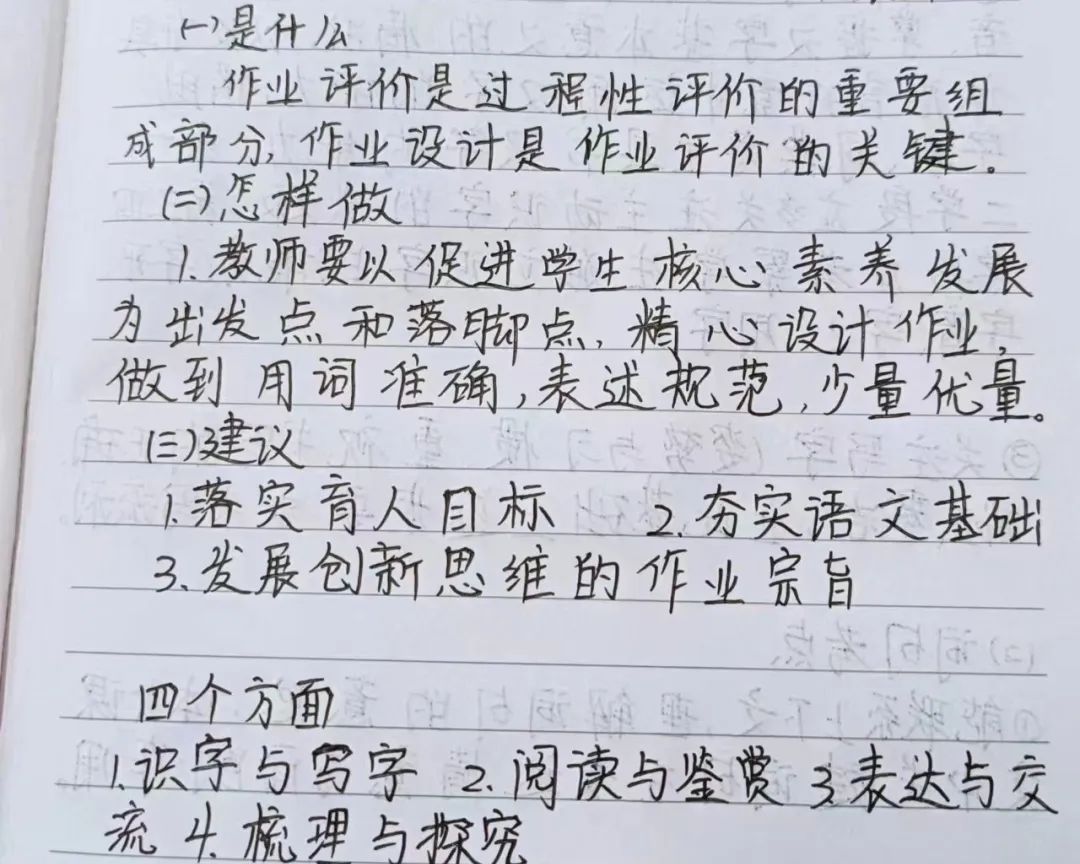 (一)是什么
作业评价是过程性评价的重要组
成部分,作业设计是作业评价的关键。
(二)怎样做
1.教师要以促进学生核心素养发展
为出发点和落脚点,精心设计作业,
做到用词准确,表述规范,少量优量。
(三)建议
1.落实育人目标 2.夯实语文基础
3.发展创新思维的作业宗旨
四个方面
1.识字与写字 2.阅读与鉴赏 3.表达与交
流 4.梳理与探究